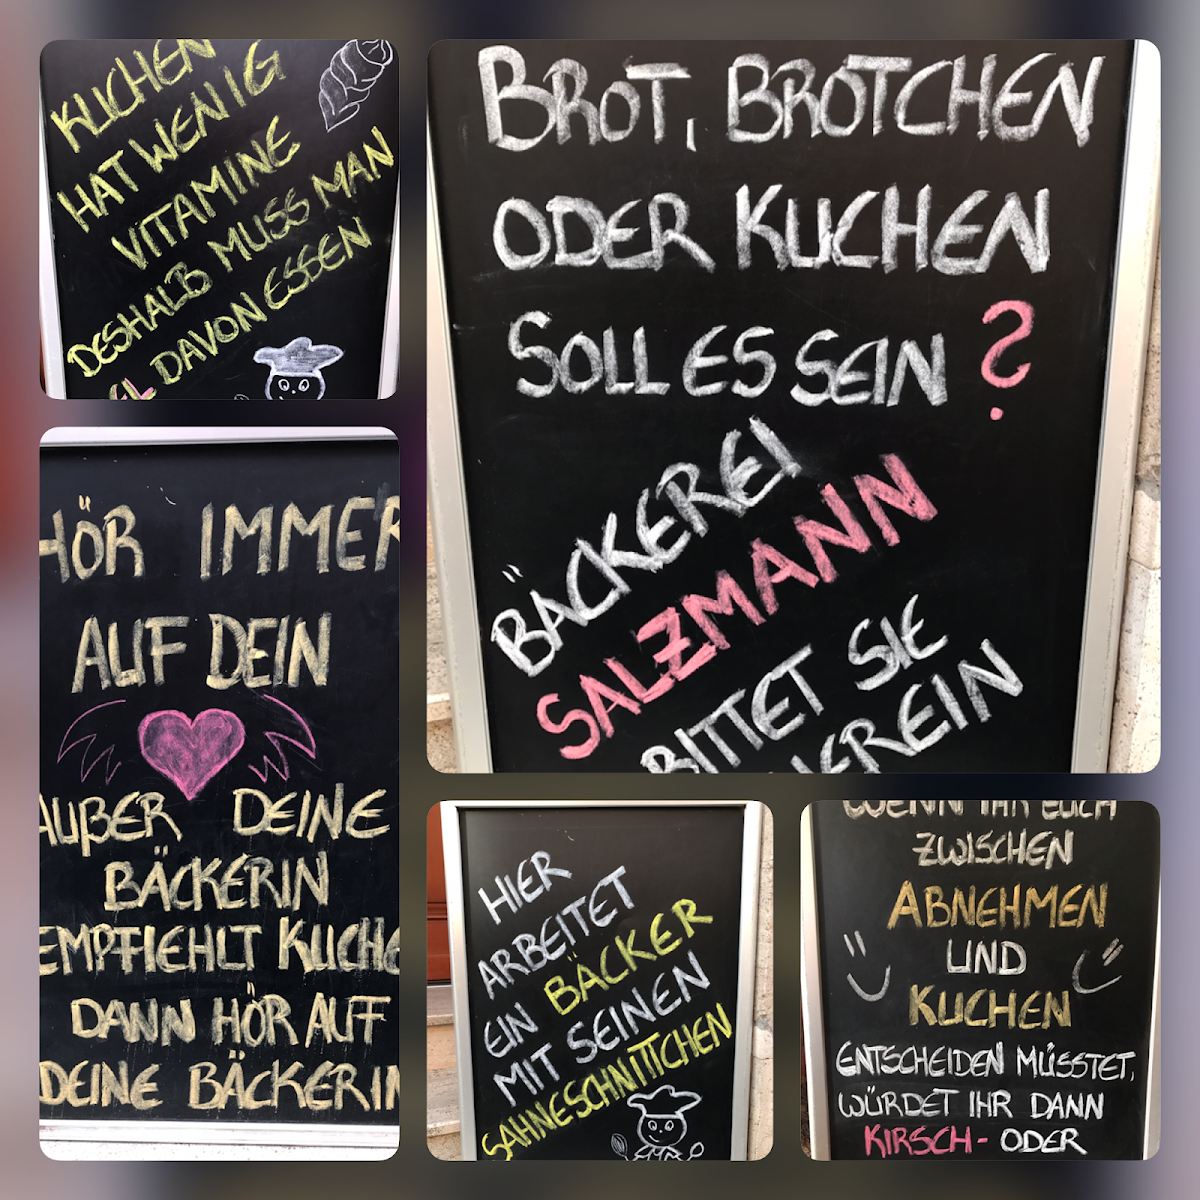 KUCHEN
HAT WENIG
VITAMINE
DESHALB MUSS MAN
DAVON ESSEN
BROT, BRÖTCHEN
ODER KUCHEN
SOLL ES SEIN ?
BÄCKEREI
SALZMANN
BITTET SIE
HEREIN
HÖR IMMER
AUF DEIN
AUßER DEINE
BÄCKERIN
EMPFIEHLT KUCHE
DANN HÖR AUF
DEINE BÄCKERIN
HIER
ARBEITET
EIN BÄCKER
MIT SEINEN
SAHNESCHNITTCHEN
WENN IHR EUCH
ZWISCHEN
ABNEHMEN
UND
KUCHEN
ENTSCHEIDEN MÜSSTET,
WÜRDET IHR DANN
KIRSCH- ODER